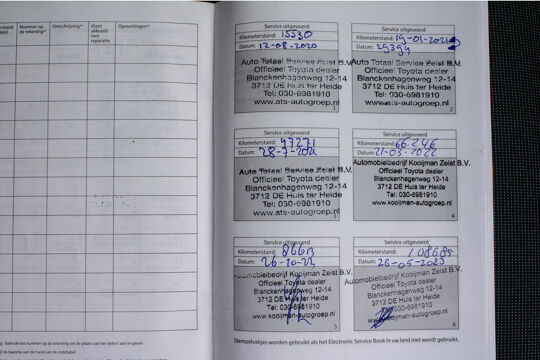 Nummer op
de tekening
Omschrijving
Klant
akkoord
met
reparatie
Opmerkingen
Service uitgevoerd
Kilometerstand: 15530
Datum: 12-08-2020
Auto Totaal Service Zeist B.V.
Officieel Toyota dealer
Blanckenhagenweg 12-14
3712 DE Huis ter Heide
Tel: 030-6981910
www.ats-autogroep.nl
1
Service uitgevoerd
Kilometerstand: 19-01-2021
Datum: 29399
Auto Totaal Service Zeist B.V.
Officieel Toyota dealer
Blanckenhagenweg 12-14
3712 DE Huis ter Heide
Tel: 030-6981910
www.ats-autogroep.nl
2
Service uitgevoerd
Kilometerstand: 47271
Datum: 28-7-2021
Auto Totaal Service Zeist B.V.
Officieel Toyota dealer
Blanckenhagenweg 12-14
3712 DE Huis ter Heide
Tel: 030-6981910
www.ats-autogroep.nl
Service uitgevoerd
Kilometerstand: 66.246
Datum: 21-03-2022
Automobielbedrijf Kooijman Zeist B.V.
Officieel Toyota dealer
Blanckenhagenweg 12-14
3712 DE Huis ter Heide
Tel: 030-6981910
www.kooijman-autogroep.nl
4
Service uitgevoerd
Kilometerstand:
Datum: 26-10-22
Automobielbedrijf Kooijman Zeist B.V.
Officieel Toyota dealer
Blanckenhagenweg 12-14
3712 DE Huis ter Heide
Tel: 030-6981910
www.kooijman-autogroep.nl
5
Service uitgevoerd
Kilometerstand: 108685
Datum: 26-05-2023
Automobielbedrijf Kooijman Zeist B.V.
Officieel Toyota dealer
Blanckenhagenweg 12-14
3712 DE Huis ter Heide
Tel: 030-6981910
www.kooijman-autogroep.nl
6
Stempelvakjes worden gebruikt als het Electronic Service Book in uw land niet wordt gebruikt.
Gebruik het nummer op de tekening om de plaats van het defect aan te geven